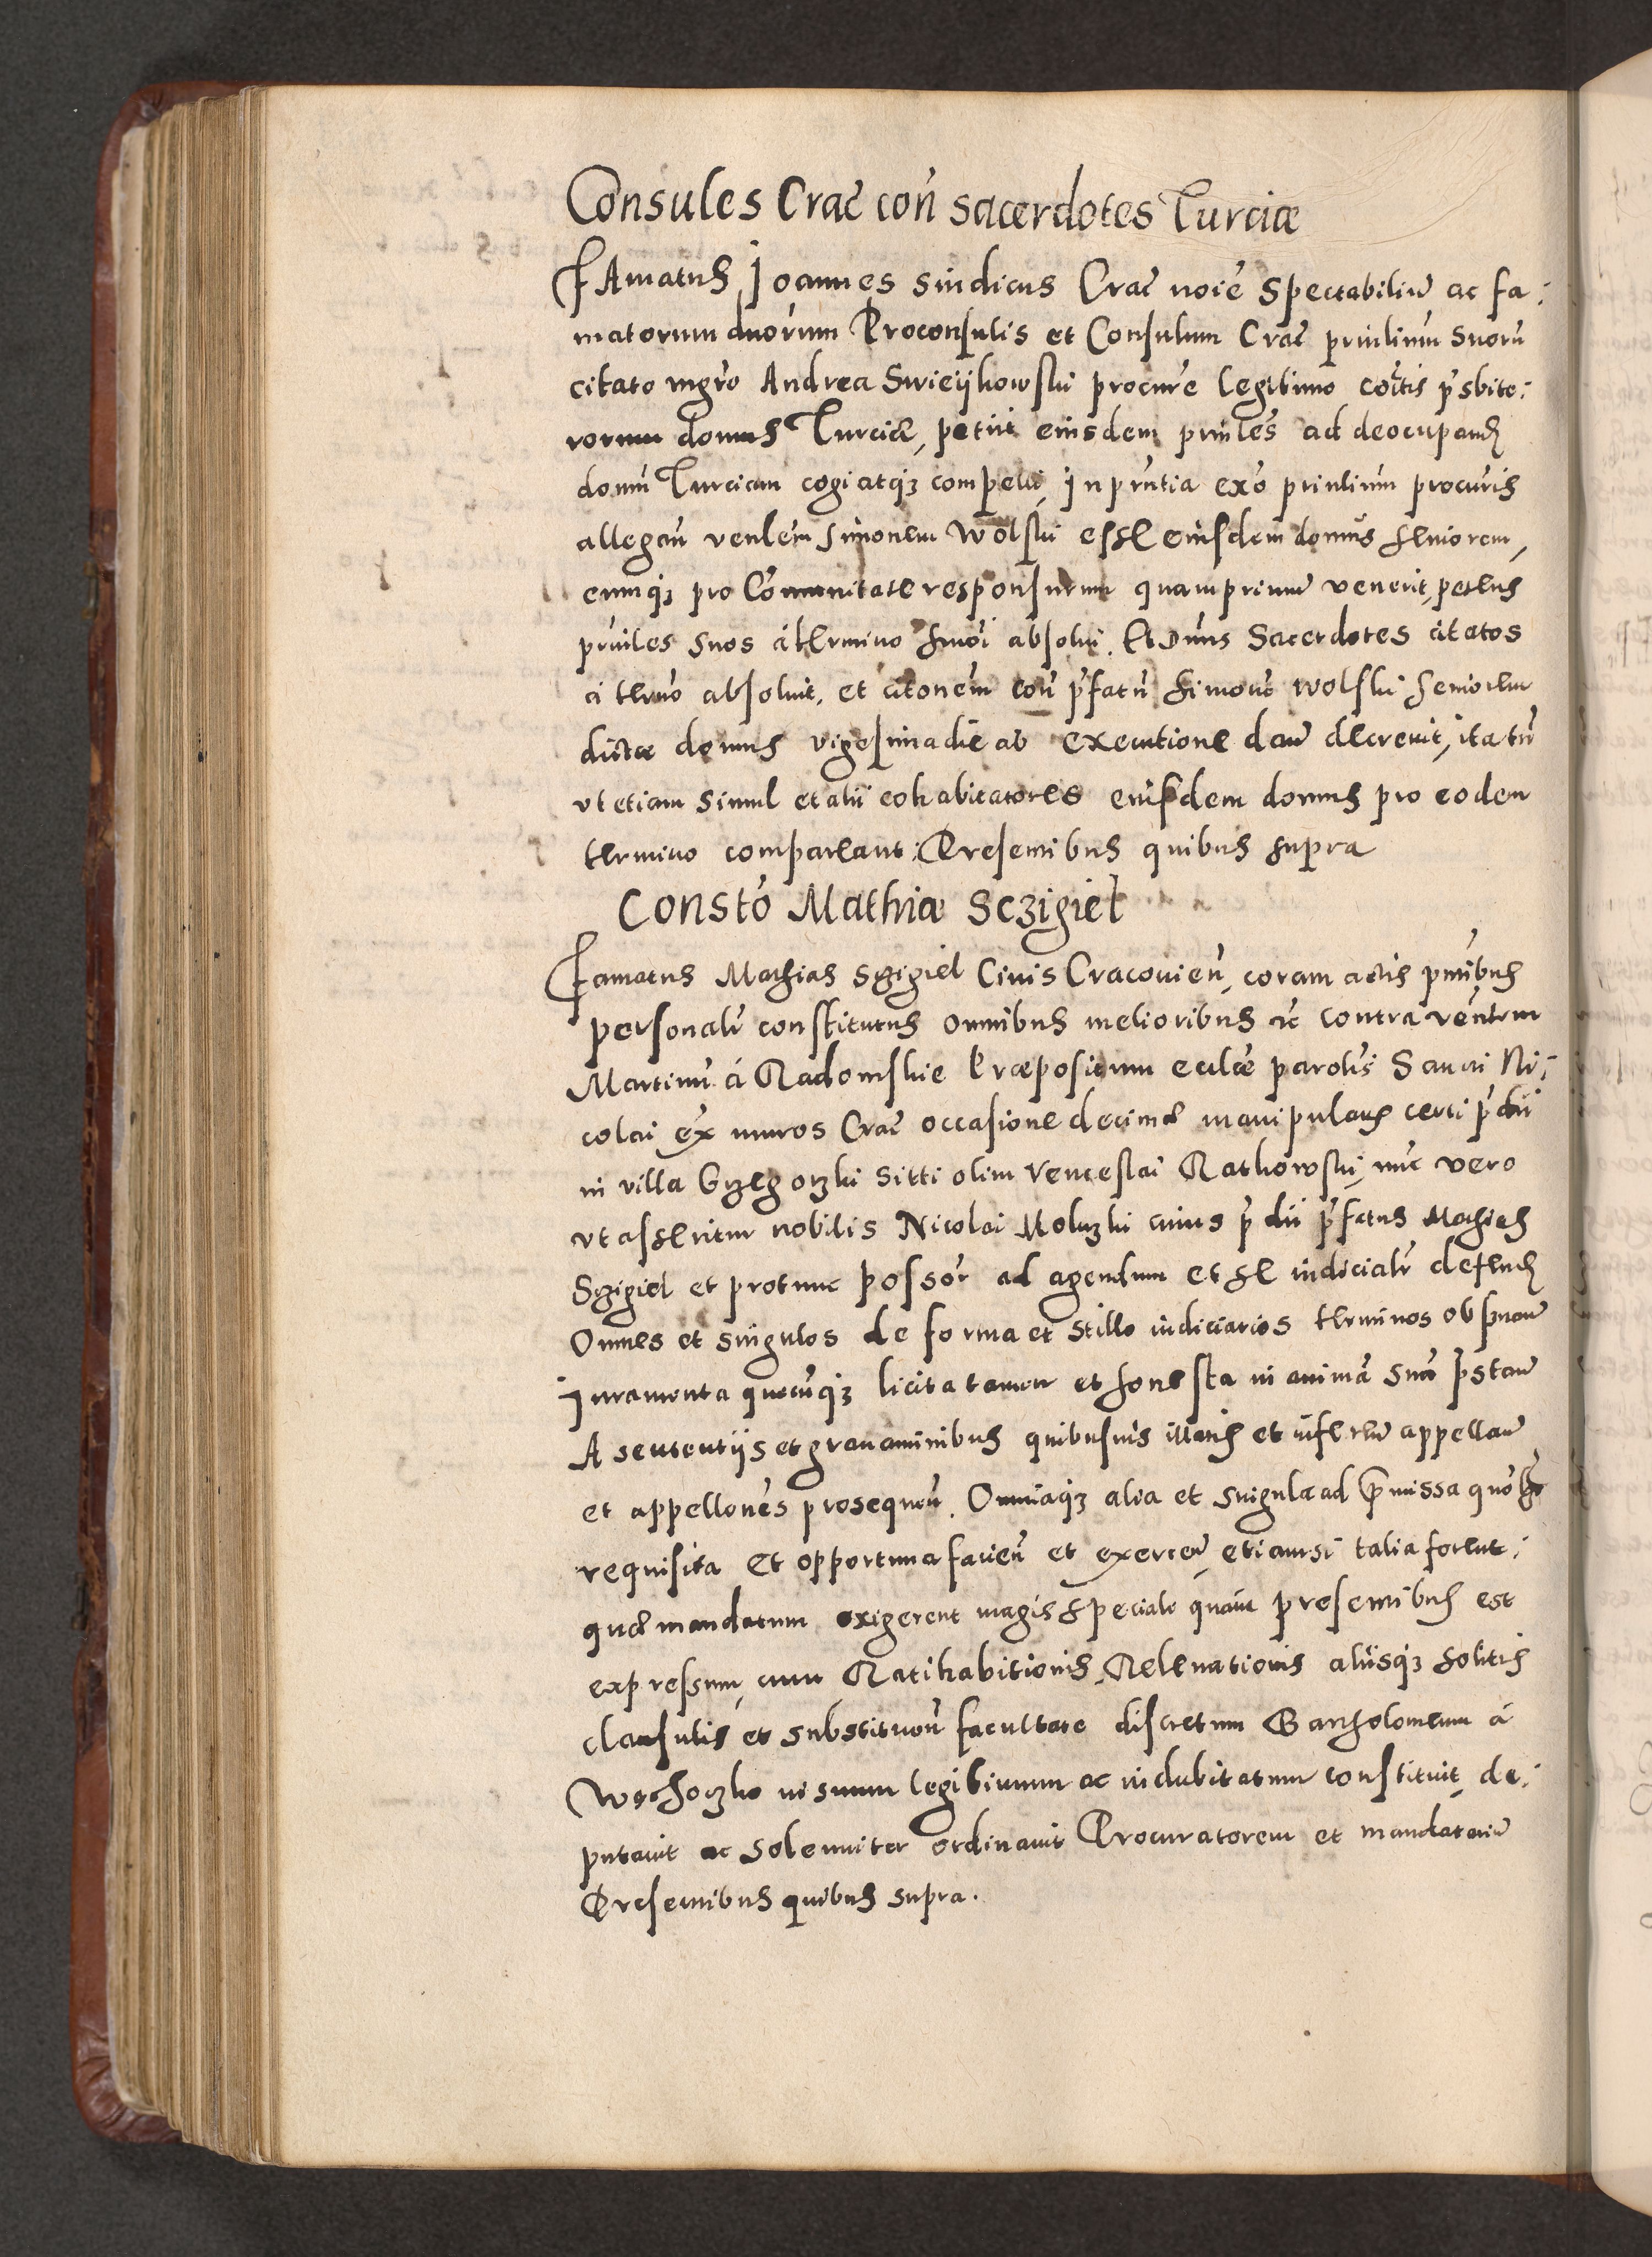 Consules Crac̃ con̄ sacerdotes Turciæ
FAmatus Joannes sindicus Crac̃ noīe Spectabiliū ac fa:
matorum duorum Proconsulis et Consulum Crac̃ prinlium̄ suorū
citato mgr̄o Andrea Swieijkowski procur̄e Legitimo coītis pr̄sbite:
rorum domus Turciæ, petiit eiusdem prinles̄ ad deocupand̃
domū Turciam cogi atqꝫ compelli, In prn̄tia exō prinlium̄ procur̄is
allegan̄ venlem̄ Simonem Wolski esse eiusdem domus seniorem,
eumqꝫ pro Com̄unitate responsurum quamprimum venerit, petens
prinles̄ suos à termino hm̄oi absolui. Et Dn̄us Sacerdotes citatos
à termo absoluit, et citonem̄ con̄ pr̄fatū Simonē Wolski Seniorem
dictæ domus vigesimadie ab executione dan̄ decreuit, ita tn̄
vt etiam simul et alii cohabitatores eiusdem domus pro eodem
termino compareant: Presentibus quibus supra
Constō Mathiæ Sczigiel
Famatus Mathias Sczigiel Ciuis Cracouien̄, coram actis pn̄tibus
personalr̄ constitutus omnibus melioribus ꝛc̃ contra venlem̄
Martinū à Radomskie Præpositum ecclǣ parolis̄ Sancti Ni:
colai ex̄ muros Crac̃ occasione decimæ manipularis certi pr̄dii
in villa Grzegorzki sitti olim Venceslai Rathowski, nūc vero
vt asseritur nobilis Nicolai Moluzki cuius pr̄dii pr̄fatus Mathias
Sczigiel et protunc possor̄ ad agendum et se iudicialr̄ defend̃
Omnes et singulos de forma et stillo iudiciarios terminos obseruan̄
Juramenta quæcūqꝫ licita tamen et honesta in animā suā pr̄stan̄
A sententijs et grauaminibus quibusuis illatis et inferen̄ appellan̄
et appellones̄ prosequen̄. Omniaqꝫ alia et singula ad præmissa
requisita et opportuna facien̄ et exercen̄, etiamsi talia forent:
quæ mandatum exigerent magis speciale quam presentibus est
expressum, cum Ratihabitionis, Releuationis aliisqꝫ solitis
clausulis et substituen̄ facultate discretum Bartholomeum à
Wschoczko in suum legitimum ac indubitatum constituit, de:
putauit ac solemniter ordinauit Procuratorem et mandatariū
Presentibus quibus supra.